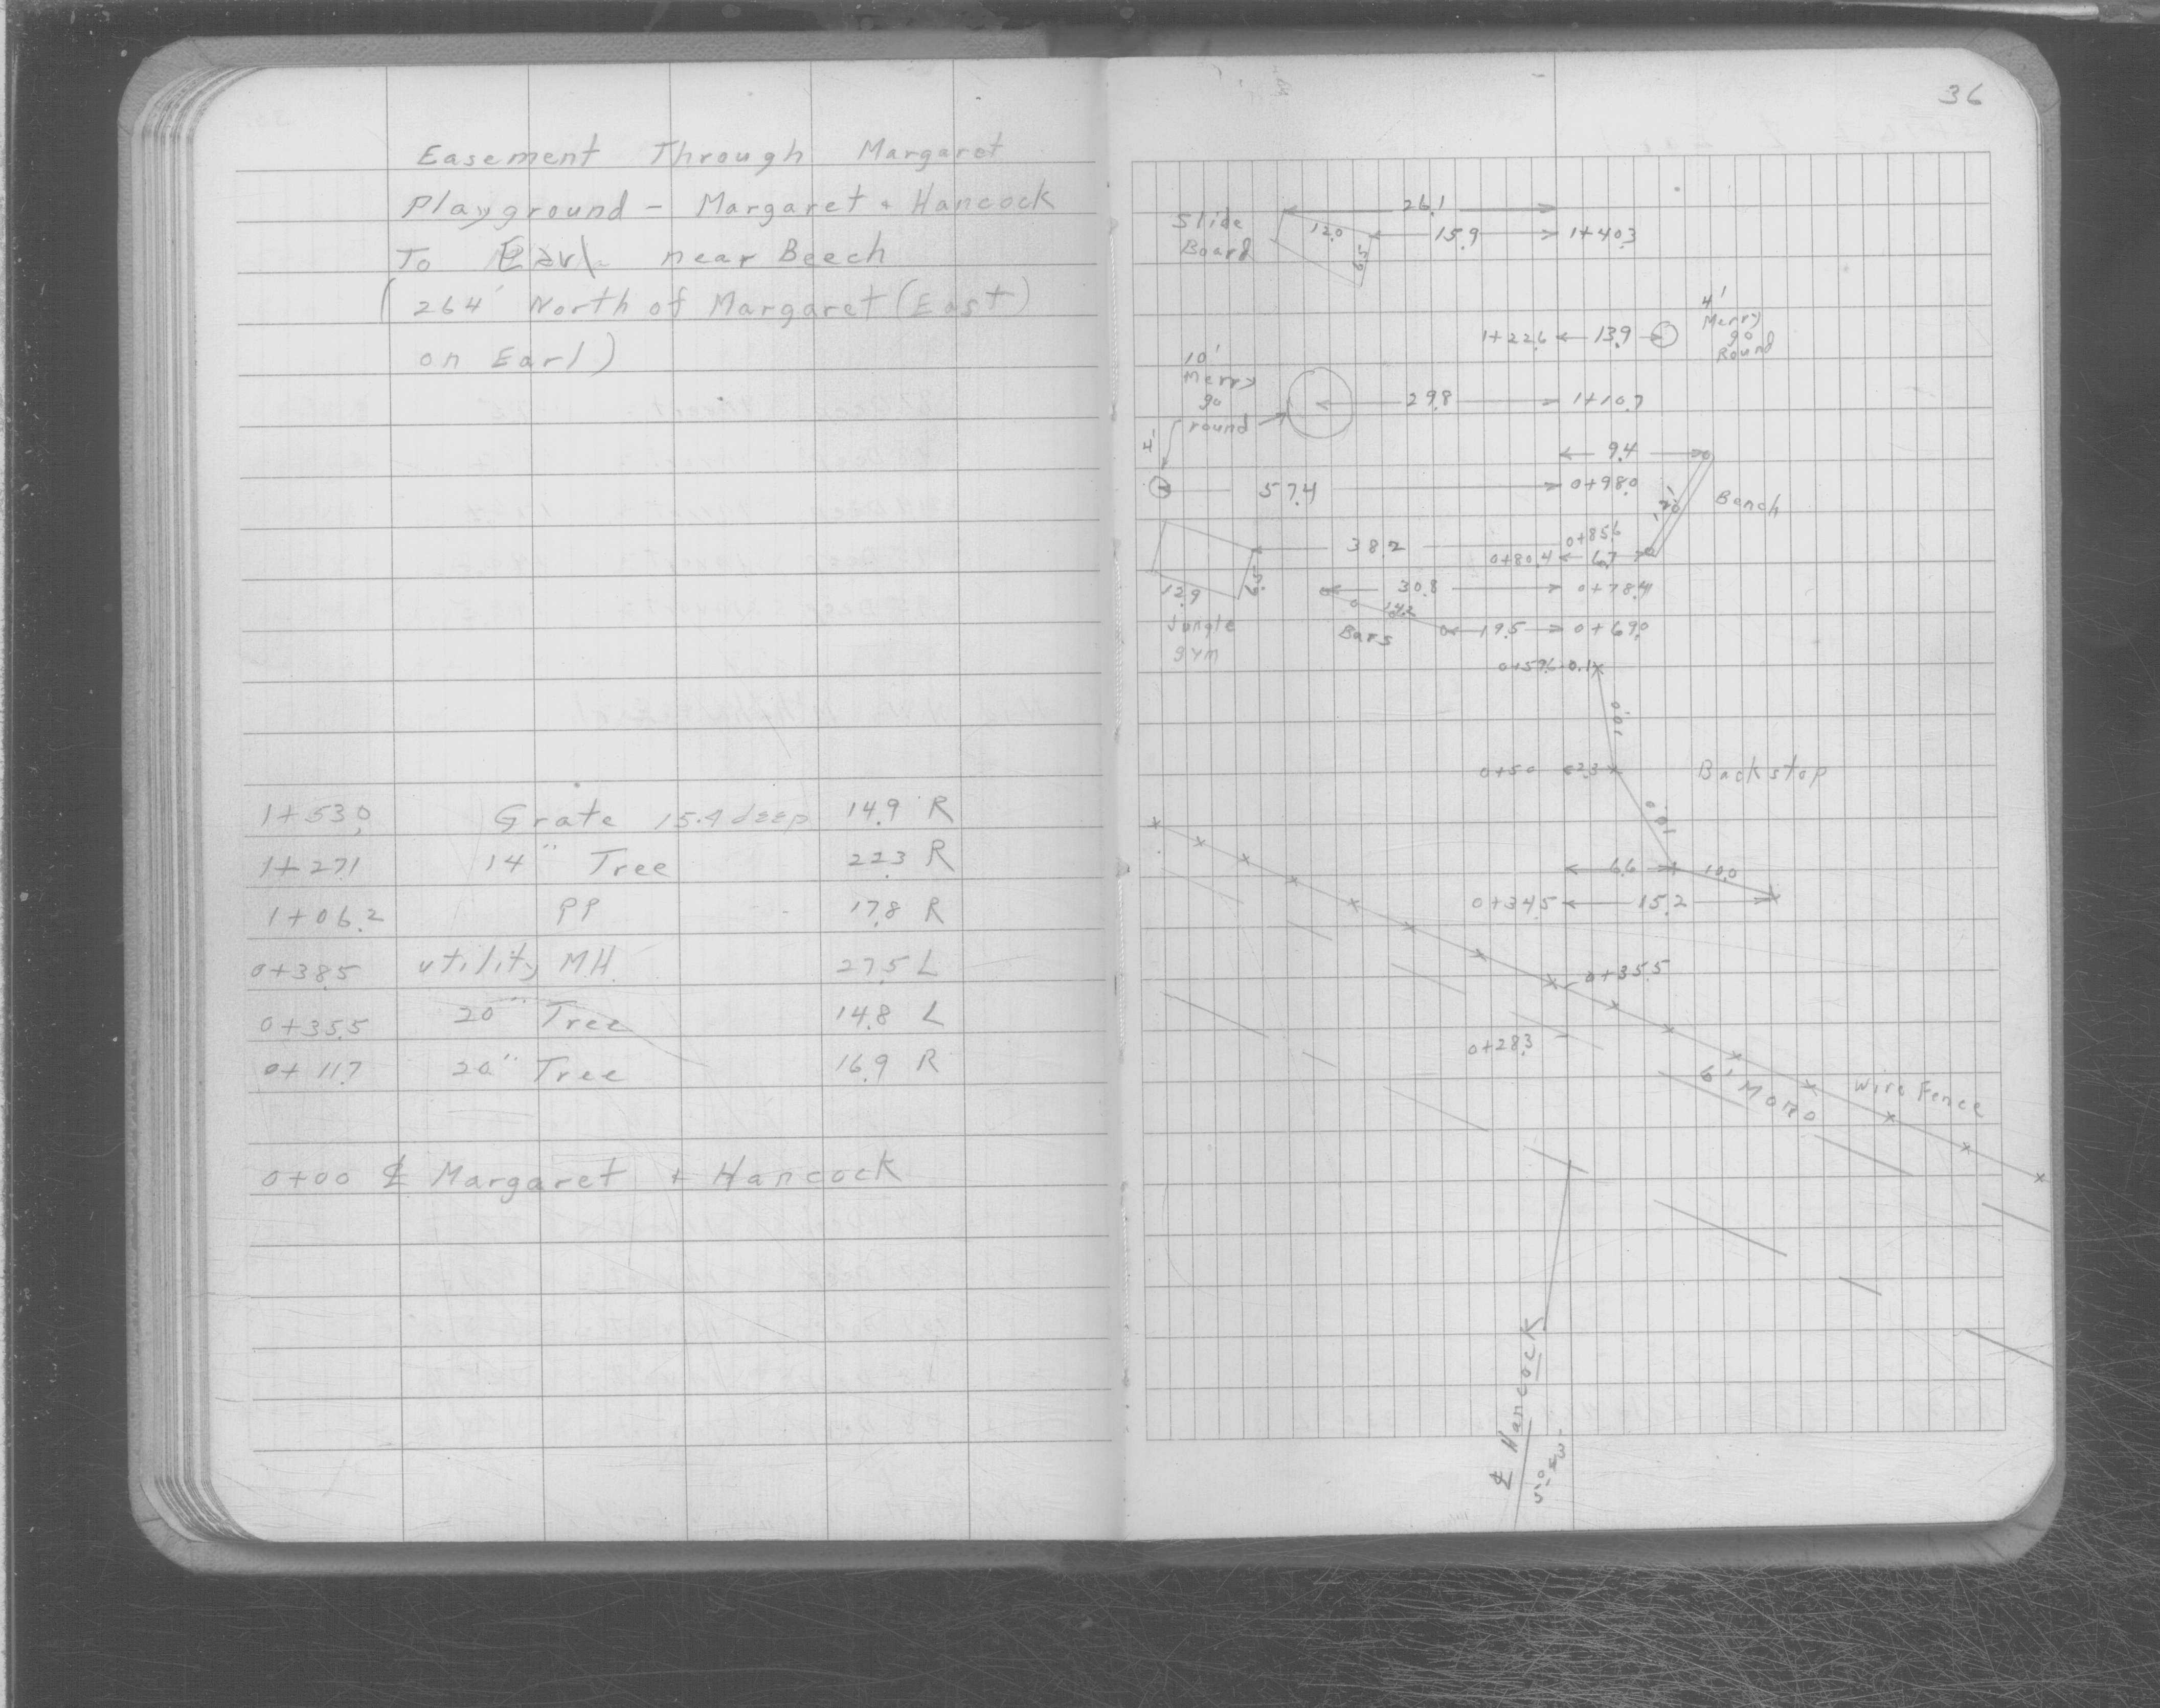 Easement Through Margaret
Playground - Margaret + Hancock
To Earl near Beech
(264' North of Margaret (East)
on Earl)
1+53.0 Grate 15.4 deep 14.9 R
1+27.1 14" Tree 22.3 R
1+06.2 PP 17.8 R
0+38.5 utility MH. 27.5 L
0+35.5 20" Tree 14.8 L
0+11.7 20" Tree 16.9 R
0+00 ℄ Margaret + Hancock
36
26.1
Slide
Board
12.0
6.5
15.9
1+40.3
4'
Merry
go
Round
1+22.6
13.9
10'
Merry
go
round
29.8
1+10.7
4'
9.4
57.4
0+98.0
Bench
38.2
0+85.6
0+80.4
6.7
12.9
6.5
Jungle
gym
30.8
0+78.4
14.2
Bars
19.5
0+69.0
0+59.6
0.1
10.0
0+50
2.3
Backstop
10.0
6.6
10.0
0+34.5
15.2
0+35.5
0+28.3
6' Mono Wire Fence
℄ Hancock